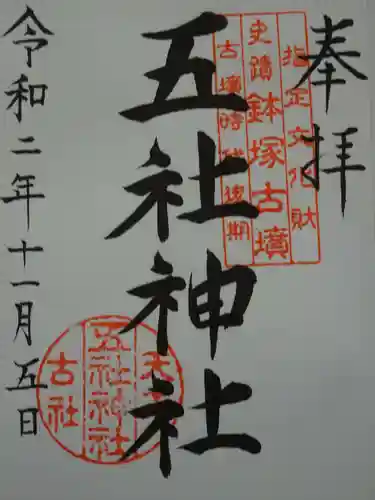 奉拝
指定文化財
史蹟鉢塚古墳
古墳時代後期
五社神社
五社神社
古社
令和二年十一月五日